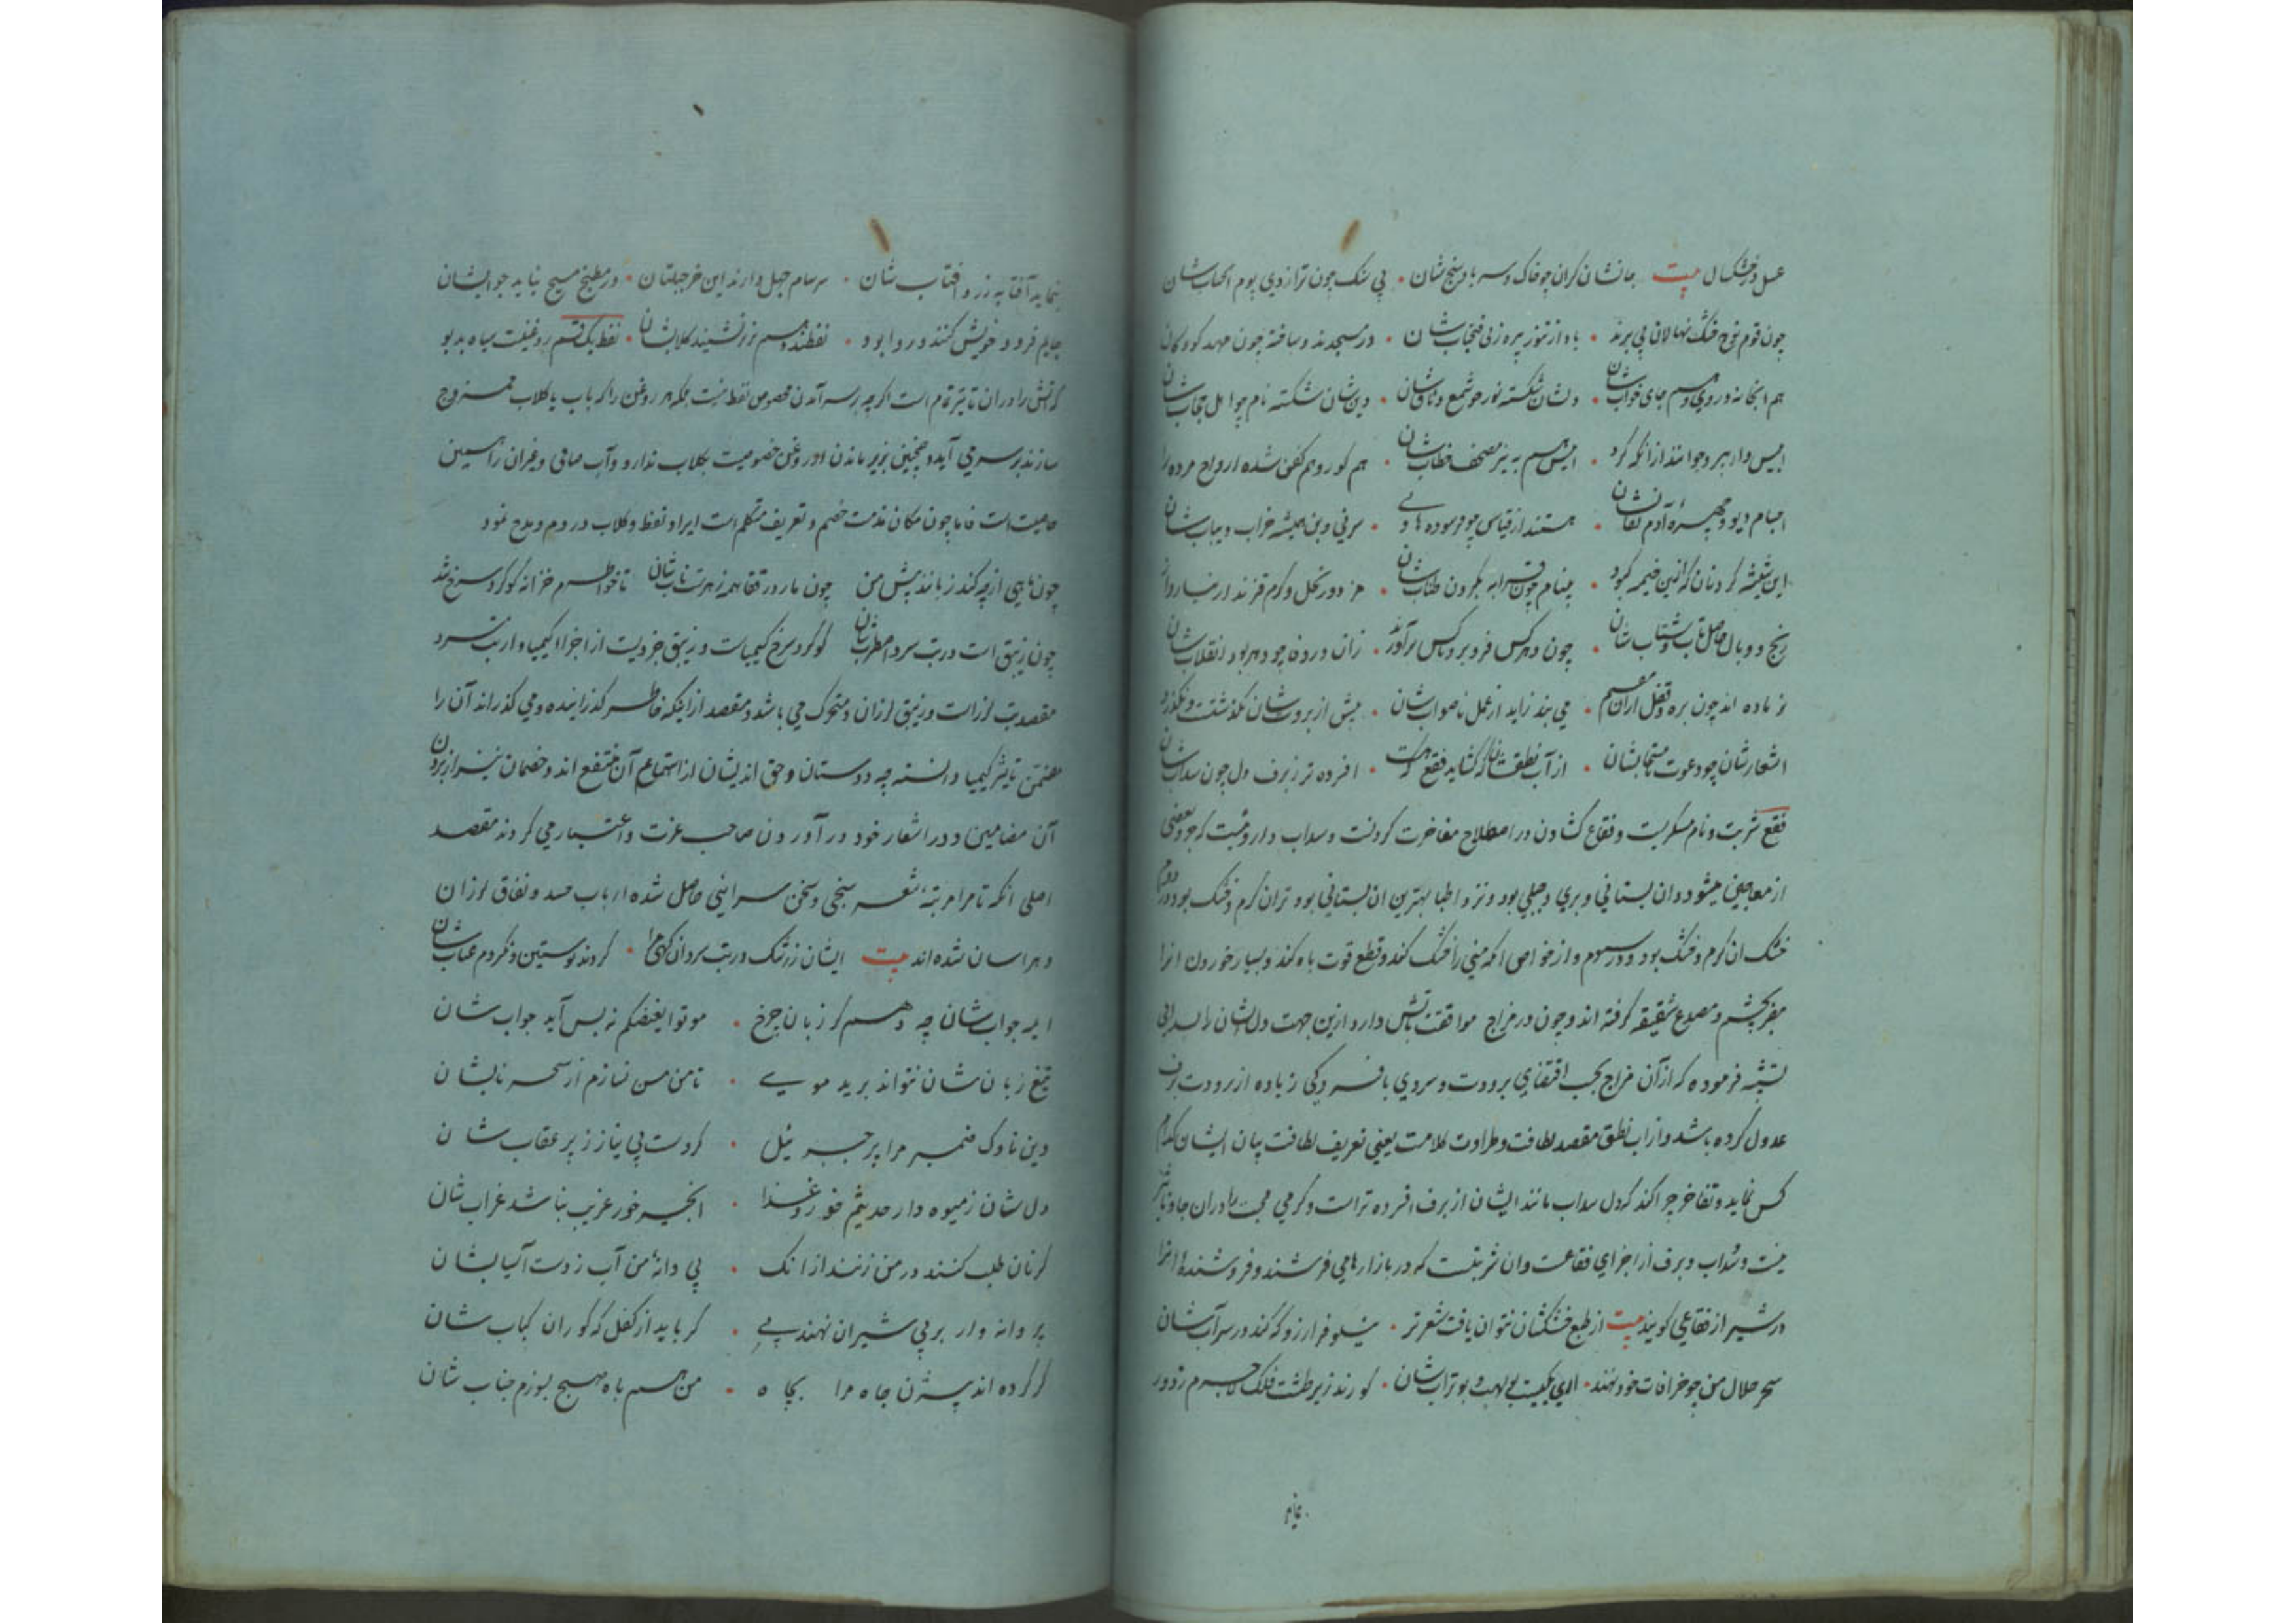 عسل و خشکسال بیت جانشان گران چو خاک و سر باد سنج شان بی سنک چون ترازوی یوم الحساب شان
چون قوم نوح خشک نهالان بی برند باد از تنور پیره زنی فتحیاب شان در مسجدند و ساخته چون مهد کودکان
هم آبخانه در وی و هم جای خواب شان دلشان شکسته نور چو شمع وثاق شان دین شان شکسته نام چو اهل حجاب شان
ابلیس وار پیر و جوانند از آنکه کرد ابلیس هم به پیر مصحف خطاب شان هم گور و هم کفن شده ارواح مرده را
اجسام دیو و چهره آدم نقاب شان هستند از قیاس چو فرسوده هاونی سر نی و بن همیشه خراب و یباب شان
این شیشه گردنان که ازین خیمه کبود بینام چون قرابه بگردن طناب شان
رنج و وبال حاصل تاب و شتاب شان چون دهر کس فرو برد و ناکس برآورد زان در وفا چو دهر بود انقلاب شان
نر ماده اند چون بره و قفل از آن مقیم می بند زاید از عمل ناصواب شان بیش از بروت شان نگذشتست و نگذرد
اشعار شان چو دعوت نامستجاب شان از آب نطق شان که گشاید فقع که هست افسرده تر ز برف دل چون سداب شان
فقع شربت و نام مسکریست و فقاع گشادن در اصطلاح مفاخرت کردنست و سداب داروئیست که جزو بعضی
از معاجین میشود و ان بستانی و بری و جبلی بود و نزد اطبا بهترین ان بستانی بود تر ان گرم و خشک بود
خشک ان گرم و خشک بود در سیوم و از خواص انکه منی را خشک کند و قطع قوت باه کند و بسیار خوردن انرا
مضر چشم و مصدع شقیقه گرفته اند و چون در مزاج موافقت باتش دارد ازین جهت دل شان را بسدابی
تشبیه فرموده که از آن مزاج بحسب اقتضای برودت و سردی بافسردگی زیاده از برودت برف
عدول کرده باشد و از اب نطق مقصد لطافت و طراوت کلامست یعنی تعریف لطافت بیان ایشان کدام
کس نماید و تفاخر چرا کند که دل سداب مانند ایشان از برف افسرده تر است و گرمی محبت را در ان جا و تاثیر
نیست و سداب و برف از اجزای فقاعست و ان شربتست که در بازارها می فروشند و فروشنده انرا
در شیراز فقاعی گویند بیت از طبع خشکشان نتوان یافت شعر تر نیلوفر ارزو که کند در سراب شان
سحر حلال من چو خرافات خود نهند اری یکیست بولهب و بوتراب شان کورند زیر طشت فلک لاجرم ز دور
بنماید آفتابه زر و آفتاب شان سرسام جهل دارند این خر جبلتان در مطبخ مسیح نیاید جو ایشان
جایم فرود خویش کنند و روا بود نفطند و هم نه زیر نشیند گلاب شان نفط یک قسم روغنیست سیاه بدبو
که آتش را در ان تاثیر تام است اگر چه بر سر آمدن مخصوص نفط نیست بلکه هر روغن را که باب یا گلاب ممزوج
سازند بر سر می آید و همچنین بزیر ماندن از روغن خصوصیت بگلاب ندارد و آب صافی و غیران را همین
خاصیت است فاما چون مکان مذمت خصم و تعریف متکلم است ایراد نفط و گلاب در ذم و مدح نمود
چون ماهی ار چه کند زبانند پیش من چون مار در قفا همه زهرست ناب شان تا خواطرم خزانه گوگرد سرخ شد
چون زیبق است در تب سرد اضطراب شان گوگرد سرخ کیمیاست و زیبق جزویست از اجزاء کیمیا و از تب سرد
مقصد تب لرز است و زیبق لرزان و متحرک می باشد و مقصد از اینکه خاطر گذرانیده و می گذراند آن را
متضمن تاثیر کیمیا دانسته چه دوستان و حق اندیشان از استماع آن منتفع اند و خصمان نیز از بردن
آن مضامین و در اشعار خود در آوردن صاحب عزت و اعتبار می گردند مقصد
اصلی انکه تا مرا مرتبه شعر سنجی و سخن سرایی حاصل شده ارباب حسد و نفاق لرزان
و هراسان شده اند بیت ایشان ز رشک در تب سرد آنگهی مرا کردند پوستین و نکردم عتاب شان
ایمه جواب شان چه دهم کز زبان چرخ موتوا بغیضکم نه بس آید جواب شان
تیغ زبان شان نتواند برید موی تا من مسن نسازم از سحر ناب شان
دین ناوک ضمیر مرا پر جبرئیل کردست بی نیاز ز پر عقاب شان
دل شان ز میوه دار حدیثم خورد غذا انجیر خور غریب نباشد غراب شان
گر نان طلب کنند در من زنند از انک بی دانه من آب زدست آسیاب شان
پروانه وار بر پی شیران نهند پی گر باید از کفل گه گوران کباب شان
گر کرده اند بیژن جاه مرا بچاه من هم باه صبح بسوزم جناب شان
بنماید